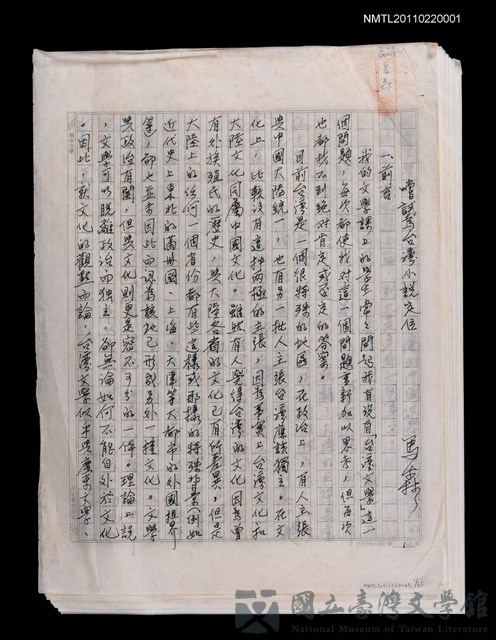 NMTL20110220001
嘗試為台灣小說定位
馬森
一、前言
我的文學課上的學生常々問起我有沒有「台灣文學」這一
個問題，每次都使我對這一個問題重新加以思考，但每次
也都找不到絕對肯定或否定的答案。
目前台灣是一個很特殊的地區，在政治上，有人主張
與中國大陸統一，也有另一批人主張台灣應該獨立。在文
化上，比較沒有這種兩極的主張，因為事實上台灣文化和
大陸文化同屬中國文化。雖然有人覺得台灣的文化因為曾
有外族殖民的歷史，與大陸各省的文化已有所差異，但是
大陸上的任何一個省份都有些這樣或那樣的特殊背景（例如
近代史上東北的滿州國、上海、天津等大都市的外國租界
等），卻也並未因此而認為該地已形成另外一種文化。文學
與政治有關，但與文化則更是密不可分的一体。理論上說
，文學可以脫離政治而獨立，卻無論如何不能自外於文化
。因此，就文化的觀點而論，台灣文學似乎與廣東文學、
NMTL20110220001 1/25
國立臺灣文學館
National Museum of Taiwan Literature